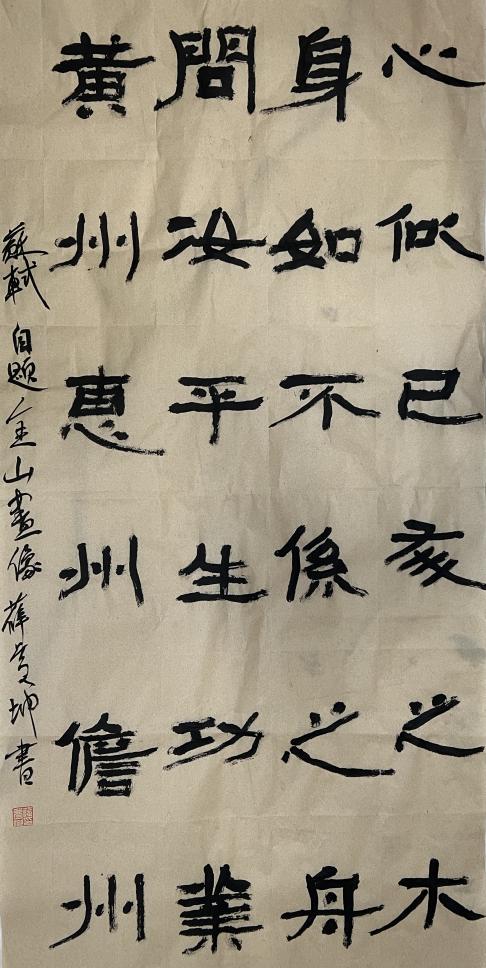 心似已灰之木
身如不係之舟
問汝平生功業
黃州惠州儋州
蘇軾 自題金山畫像 薛坤書